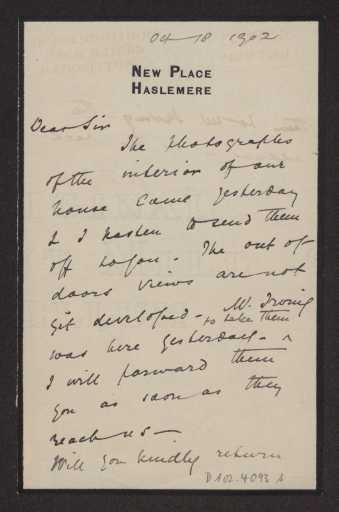 04 18 1902
NEW PLACE
HASLEMERE
Dear Sir
The photographs
of the interior of our
house came yesterday
& I hasten to send them
off to you - The out of
doors views are not
yet developed - W. Irving
was here yesterday - ^ to take them
I will forward them
you as soon as they
reach us -
Will you kindly return
D 102.4093 A